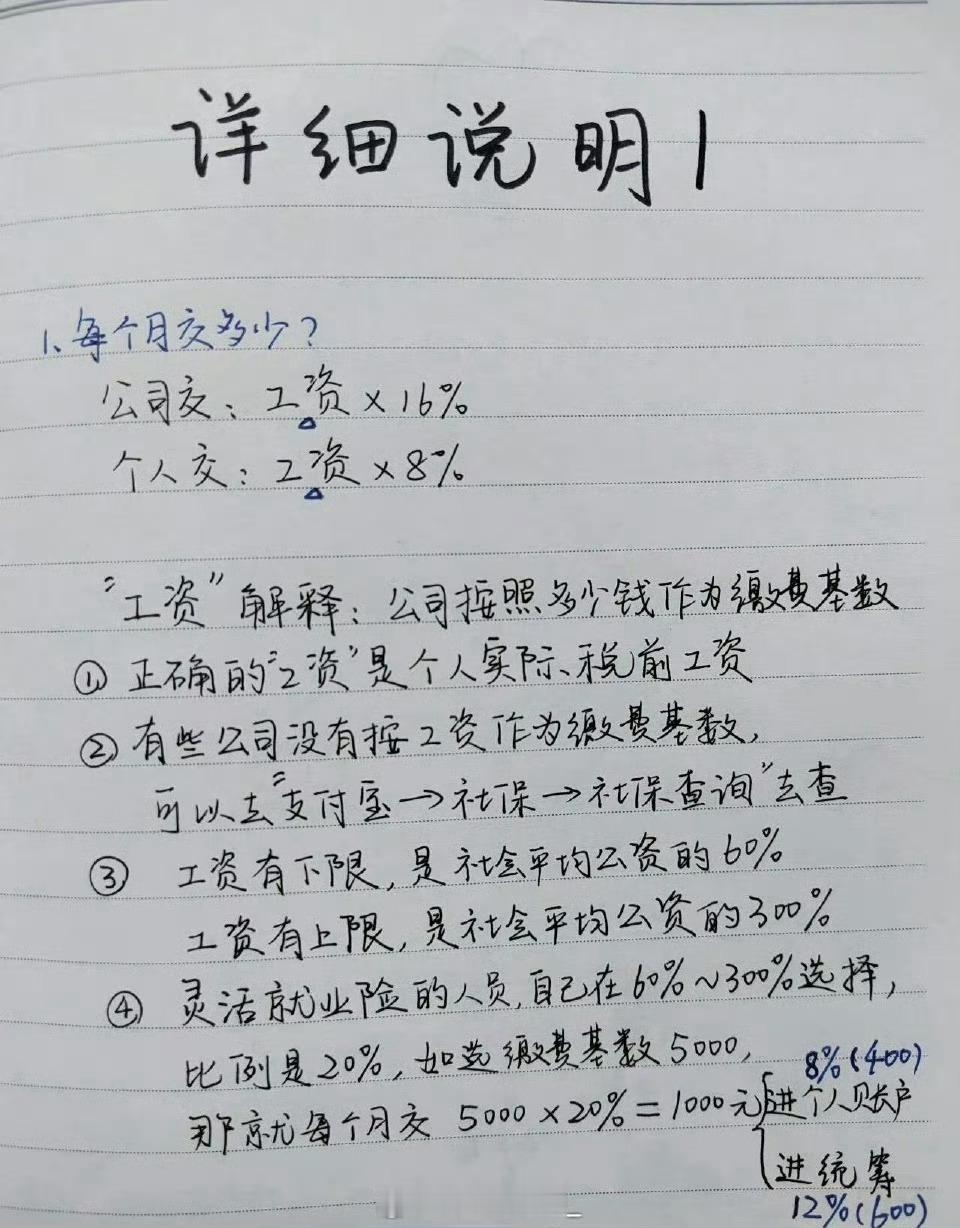 详细说明1
1、每个月交多少?
公司交：工资×16%
个人交：工资×8%
"工资"解释：公司按照多少钱作为缴费基数
① 正确的"工资"是个人实际、税前工资
② 有些公司没有按工资作为缴费基数，
可以去"支付宝→社保→社保查询"去查
③ 工资有下限，是社会平均公资的60%
工资有上限，是社会平均公资的300%
④ 灵活就业险的人员，自己在60%~300%选择，
比例是20%，如选缴费基数5000，
8%(400)
那就每个月交 5000×20%=1000元 进个人账户
进统筹
12%(600)